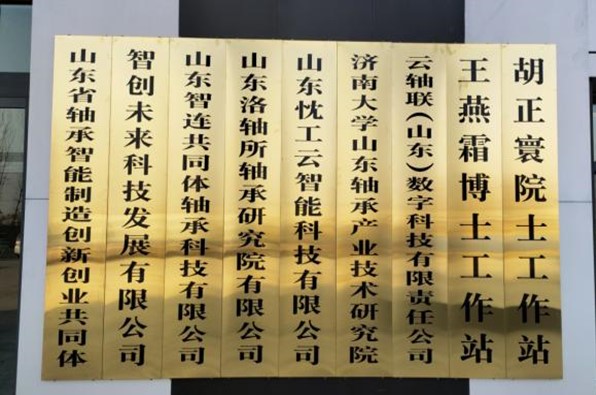 胡正寰院士工作站
王燕霜博士工作站
云轴联(山东)数字科技有限责任公司
济南大学山东轴承产业技术研究院
山东忱工云智能科技有限公司
山东洛轴所轴承研究院有限公司
山东智连共同体轴承科技有限公司
智创未来科技发展有限公司
山东省轴承智能制造创新创业共同体